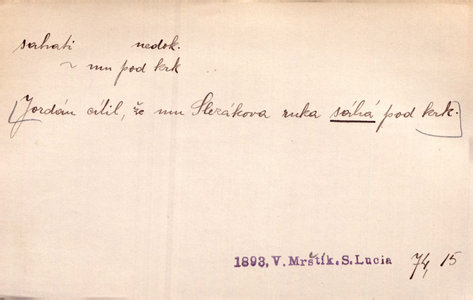 sahati nedok.
~ mu pod krk
Jordán cítil, že mu Slezákova ruka sáhá pod krk.
1893, V. Mrštík. S. Lucia 74, 15